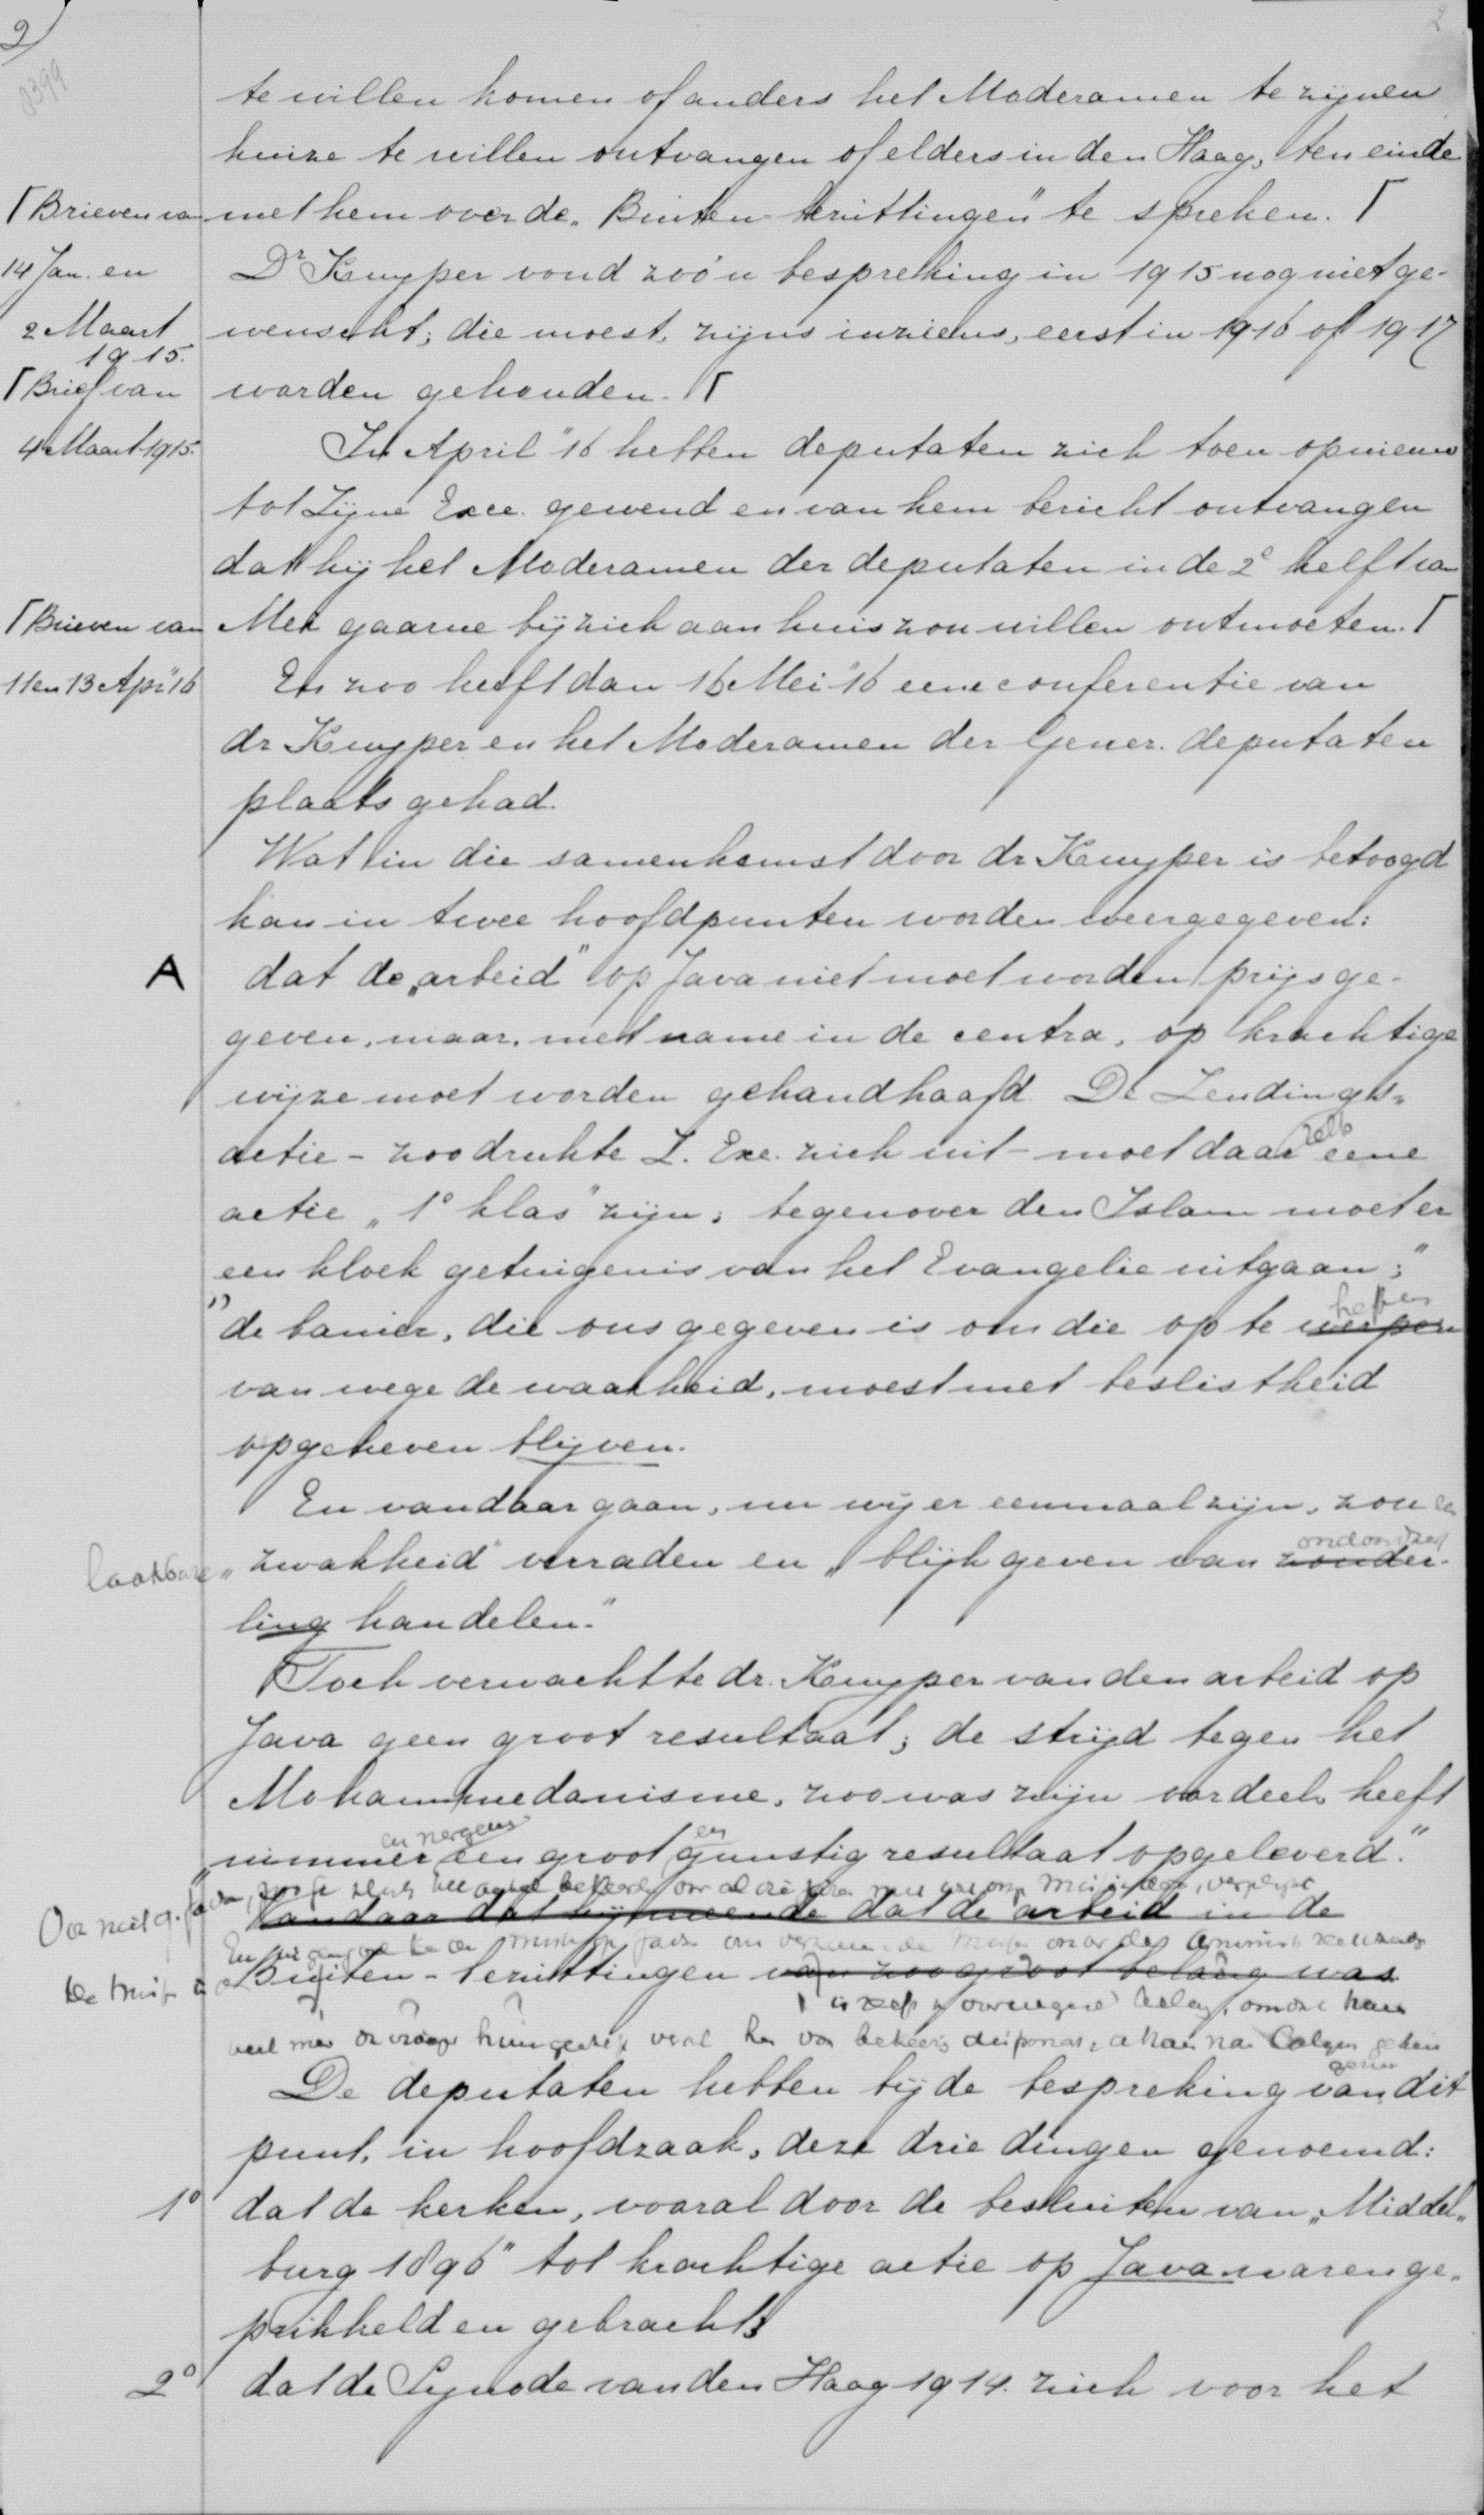 2
0399
te willen komen of anders het Moderamen te zijnen
huize te willen ontvangen of elders in den Haag, ten einde
⌈ Brieven van
met hem over de „Buiten-bezittingen" te spreken. ⌈
14 Jan. en
Dr Kuyper vond zoo'n bespreking in 1915 nog niet ge-
2 Maart
1915.
wenscht; die moest, zijns inziens, eerst in 1916 of 1917
⌈ Brief van
worden gehouden. ⌈
4 Maart 1915.
In April "16 hebben deputaten zich toen opnieuw
tot Zijne Exce. gewend en van hem bericht ontvangen
dat hij het Moderamen der deputaten in de 2e helft van
⌈ Brieven van
Mei gaarne bij zich aan huis zou willen ontmoeten. ⌈
11 en 13 Apr "16
En zoo heeft dan 16 Mei "16 eene conferentie van
dr Kuyper en het Moderamen der Gener. deputaten
plaats gehad.
Wat in die samenkomst door dr Kuyper is betoogd
kan in twee hoofdpunten worden weergegeven:
A
dat de „arbeid" op Java niet moet worden prijsge-
geven, maar, met name in de centra, op krachtige
wijze moet worden gehandhaafd. De Zendings-
actie - zoo drukte Z. Exc. zich uit - moet daar zelfs eene
actie „1e klas" zijn; tegenover den Islam moet er
een kloek getuigenis van het Evangelie uitgaan;"
"de banier, die ons gegeven is om die op te werpen heffen
van wege de waarheid, moest met beslistheid
opgeheven blijven.
En vandaar gaan, nu wij er eenmaal zijn, zou een
laakbare
„zwakheid" verraden en „blijk geven van zonder-
ling handelen."
Toch verwachtte dr. Kuyper van den arbeid op
Java geen groot resultaat; de strijd tegen het
Mohammedanisme, zoo was zijn oordeel, heeft
„nimmer en nergens een groot en gunstig resultaat opgeleverd."
Vandaar dat hij meende dat de arbeid in de
Buiten-bezittingen van zoo groot belang was
De deputaten hebben bij de bespreking van dit
punt, in hoofdzaak, deze drie dingen genoemd:
1o
dat de kerken, vooral door de besluiten van „Middel-
burg 1896" tot krachtige actie op Java waren ge-
prikkeld en gebracht;
2o
dat de Synode van den Haag 1914 zich voor het